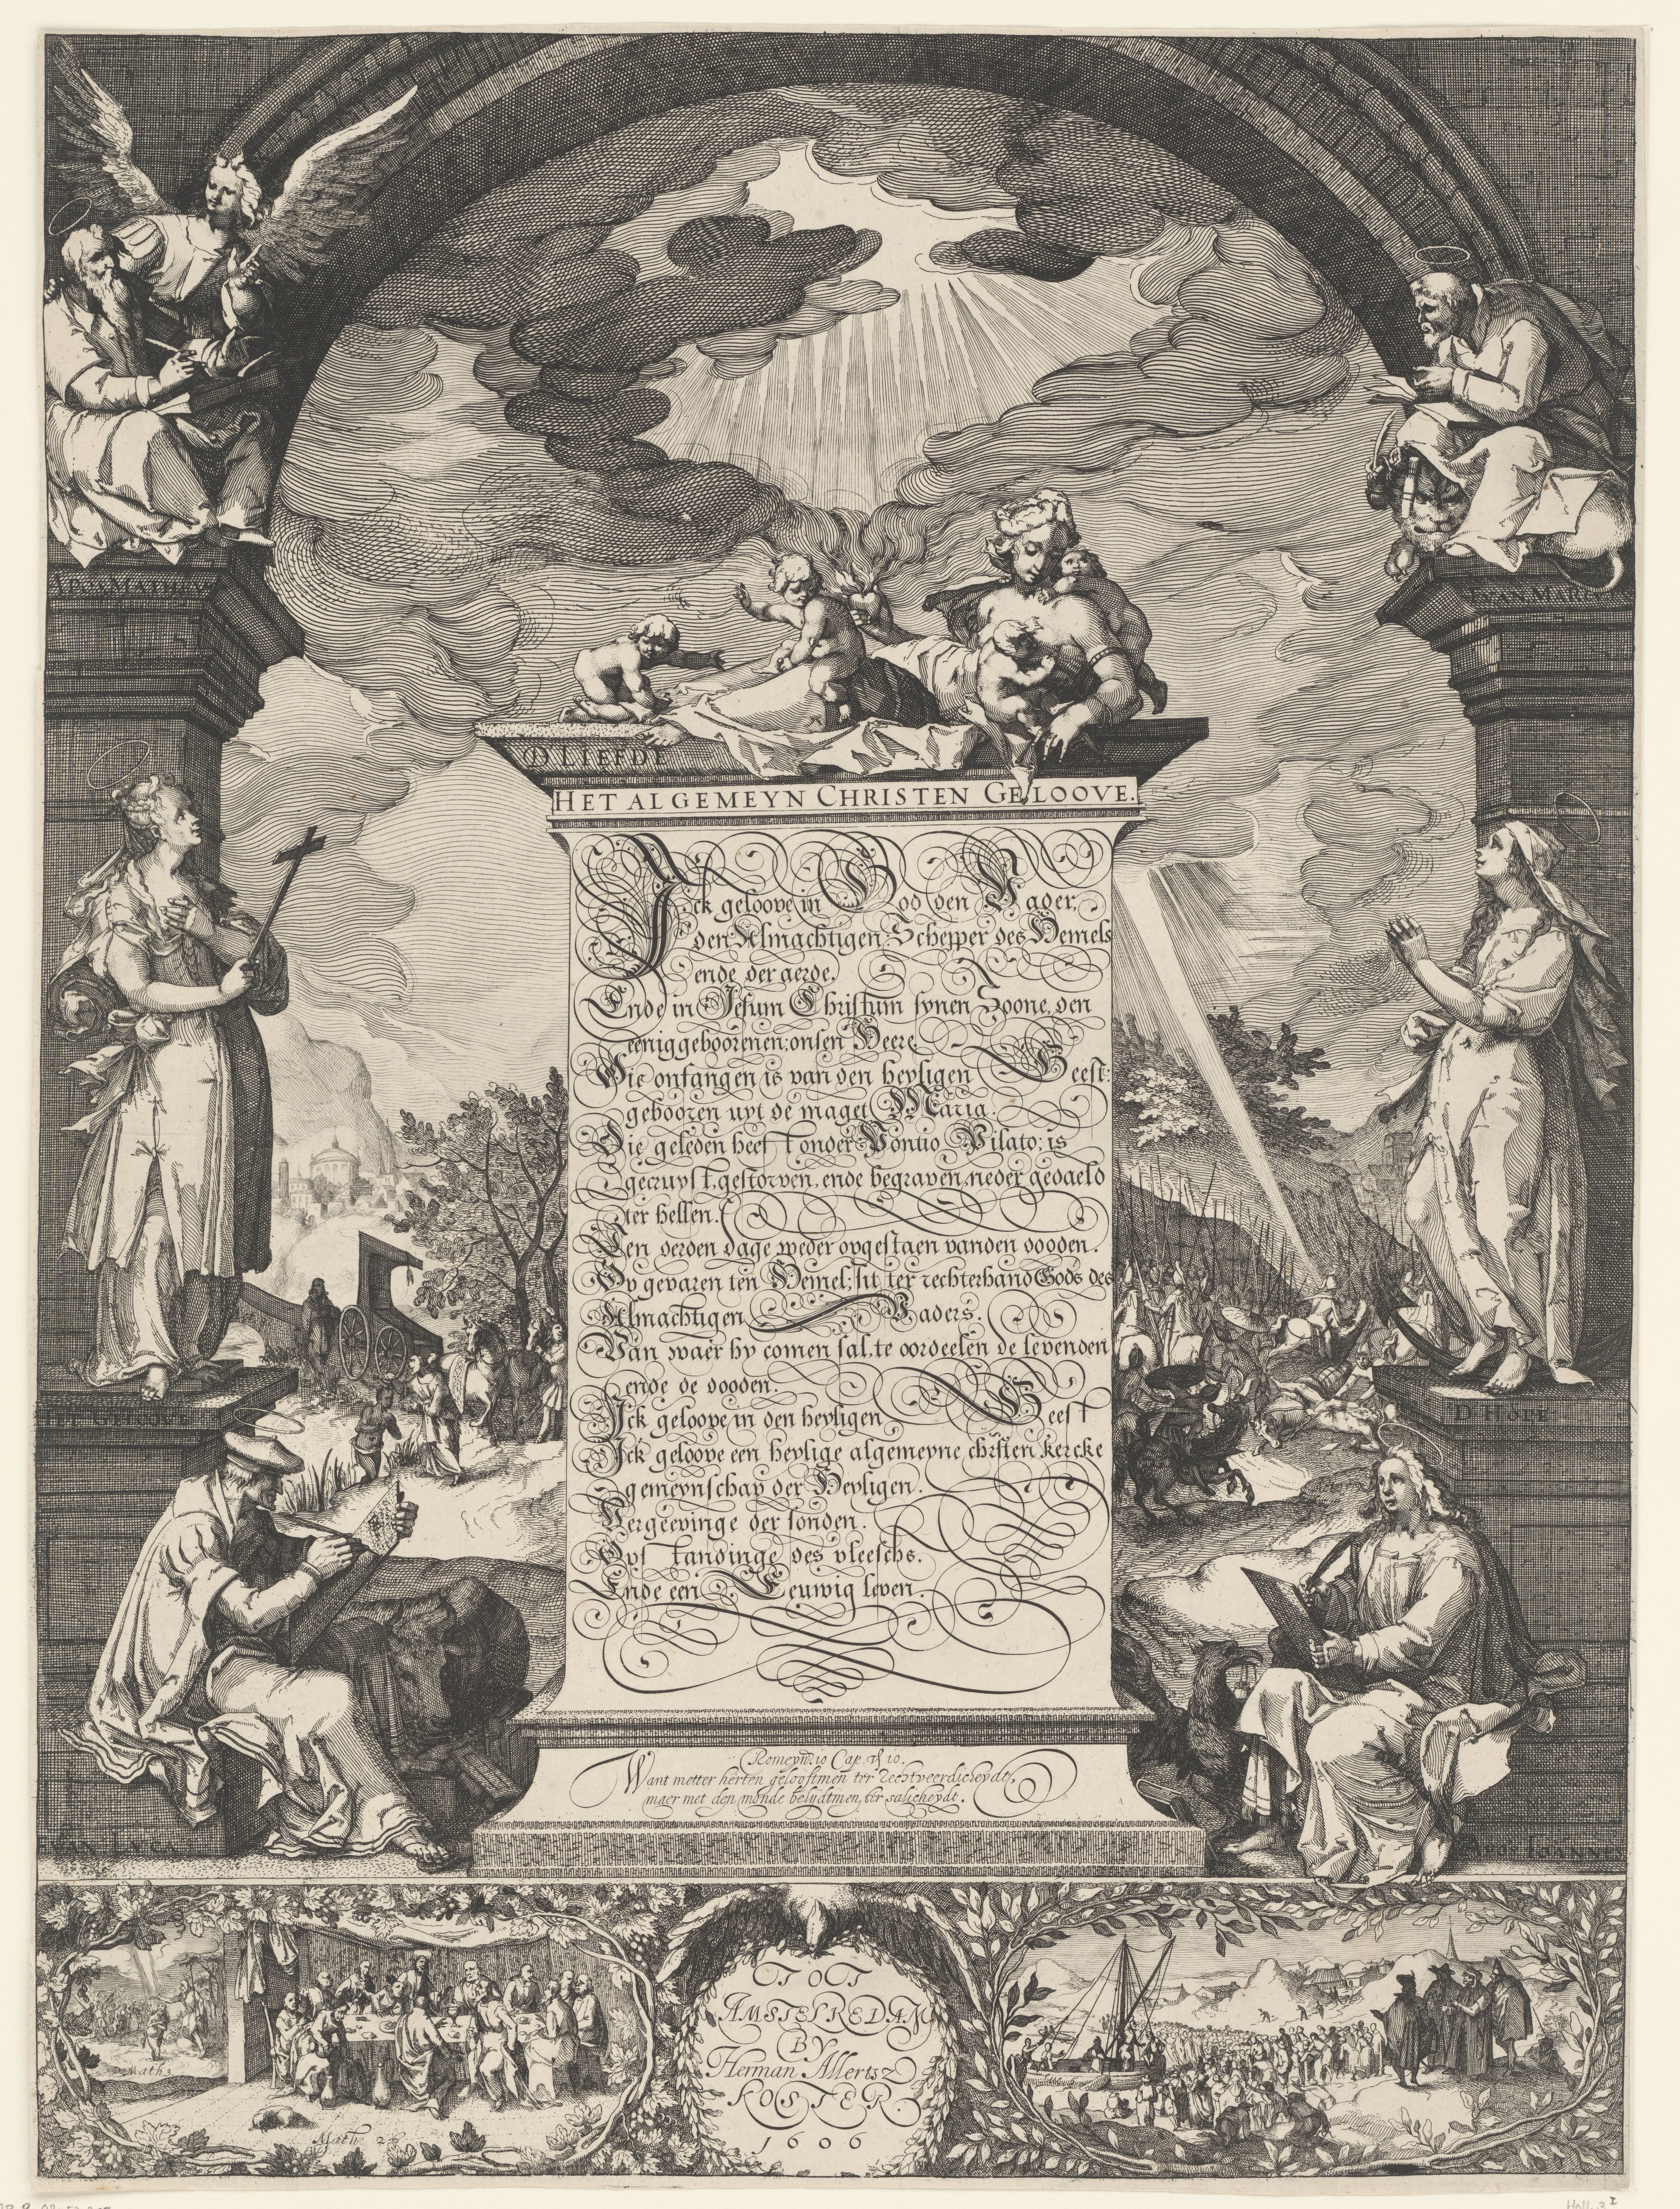 APOS. MATH
EVAN. MARC
D LIEFDE
HET ALGEMEYN CHRISTEN GELOOVE.
Ick geloove in God den Vader,
den Almachtigen Schepper des Hemels
ende der aerde.
Ende in Jesum Christum synen Soone, den
eeniggeboorenen: onsen Heere.
Die onfangen is van den heyligen Geest:
gebooren uyt de maget Maria.
Die geleden heeft onder Pontio Pilato: is
gecruyst, gestorven, ende begraven, neder gedaeld
ter hellen.
Den derden dage weder opgestaen vanden dooden.
Op gevaren ten Hemel: sit ter rechterhand Gods des
Almachtigen Vaders.
Van waer hy comen sal, te oordeelen de levenden
ende de dooden.
Ick geloove in den heyligen Geest
Ick geloove een heylige algemeyne christen kercke
gemeynschap der Heyligen.
Vergeevinge der sonden.
Opstandinge des vleeschs.
Ende een Eeuwig leven.
HET GELOOVE
D'HOPE
Romeyn. 10 Cap. vs 10.
Want metter herten gelooftmen ter rechtveerdicheydt,
maer met den monde belydtmen ter salicheydt.
EVAN LVCA
APOS IOANNES
Math 3
Math 26
TOT
AMSTELREDAM
BY
Herman Allertsz
KOSTER.
1606
Holl. 3 I